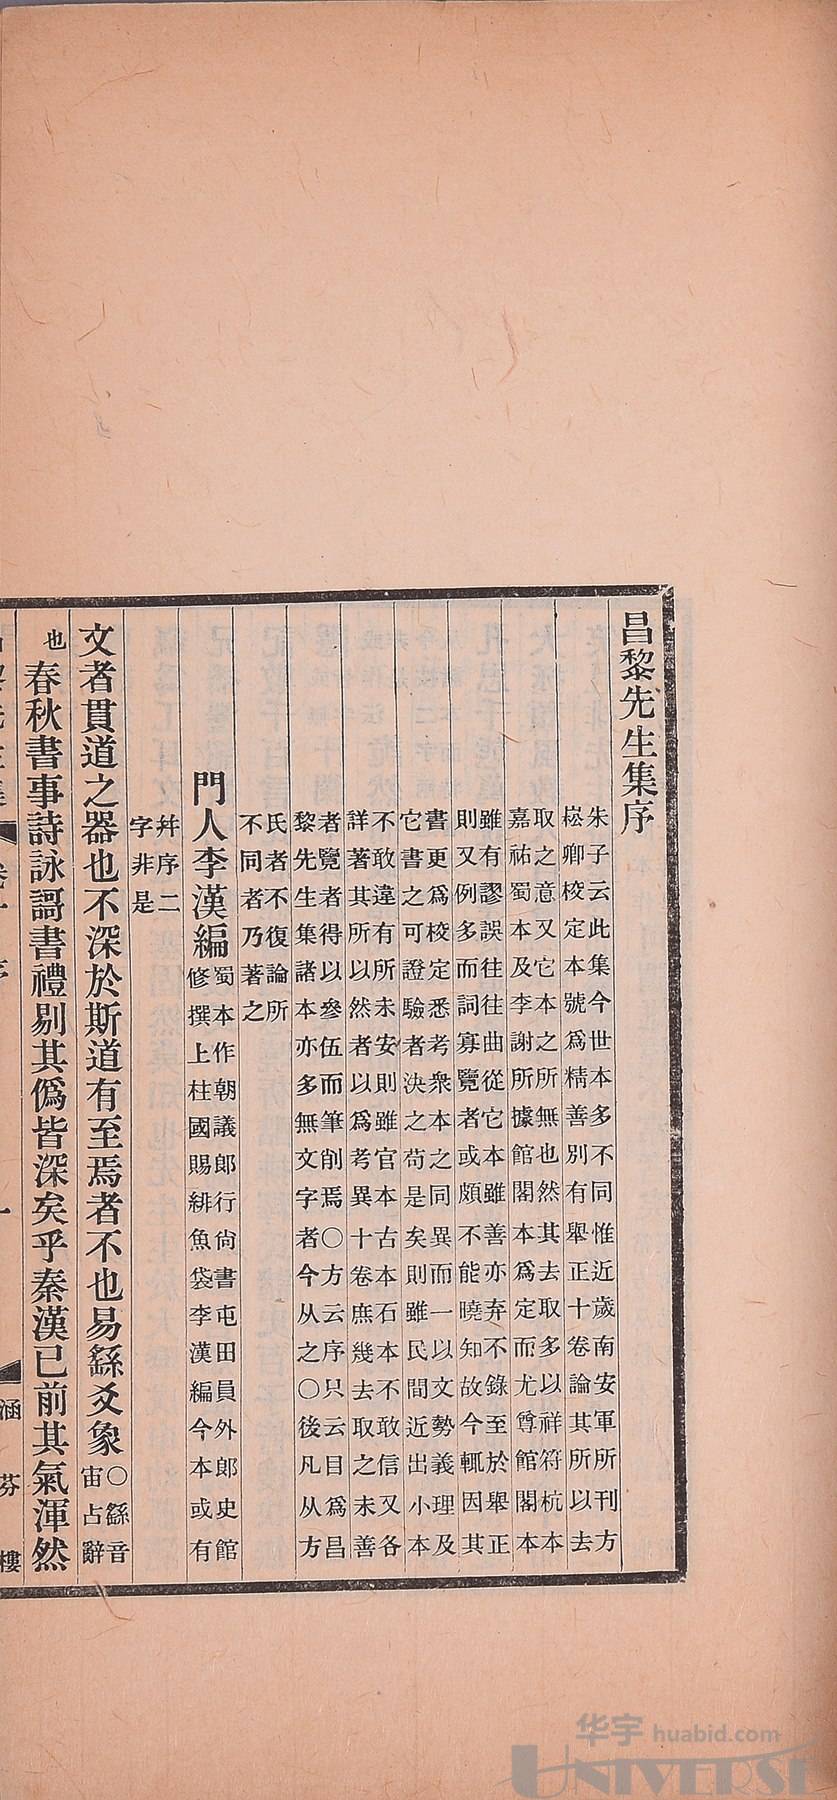 昌黎先生集序
朱子云此集今世本多不同惟近歲南安軍所刊方
崧卿校定本號爲精善別有舉正十卷論其所以去
取之意又它本之所無也然其去取多以祥符杭本
嘉祐蜀本及李謝所據館閣本爲定而尤尊館閣本
雖有謬誤往往曲從它本雖善亦弃不錄至於舉正
則又例多而詞寡覽者或頗不能曉知故今輒因其
書更爲校定悉考衆本之同異而一以文勢義理及
它書之可證驗者決之苟是矣則雖民間近出小本
不敢違有所未安則雖官本古本石本不敢信又各
詳著其所以然者以爲考異十卷庶幾去取之未善
者覽者得以參伍而筆削焉〇方云序只云目爲昌
黎先生集諸本亦多無文字者今从之〇後凡从方
氏者不復論所
不同者乃著之
門人李漢編
蜀本作朝議郎行尙書屯田員外郎史館
修撰上柱國賜緋魚袋李漢編今本或有
幷序二
字非是
文者貫道之器也不深於斯道有至焉者不也易繇爻象
〇繇音
宙占辭
也
春秋書事詩詠謌書禮剔其僞皆深矣乎秦漢已前其氣渾然
涵芬樓
华宇 huabid.com
UNIVERSE